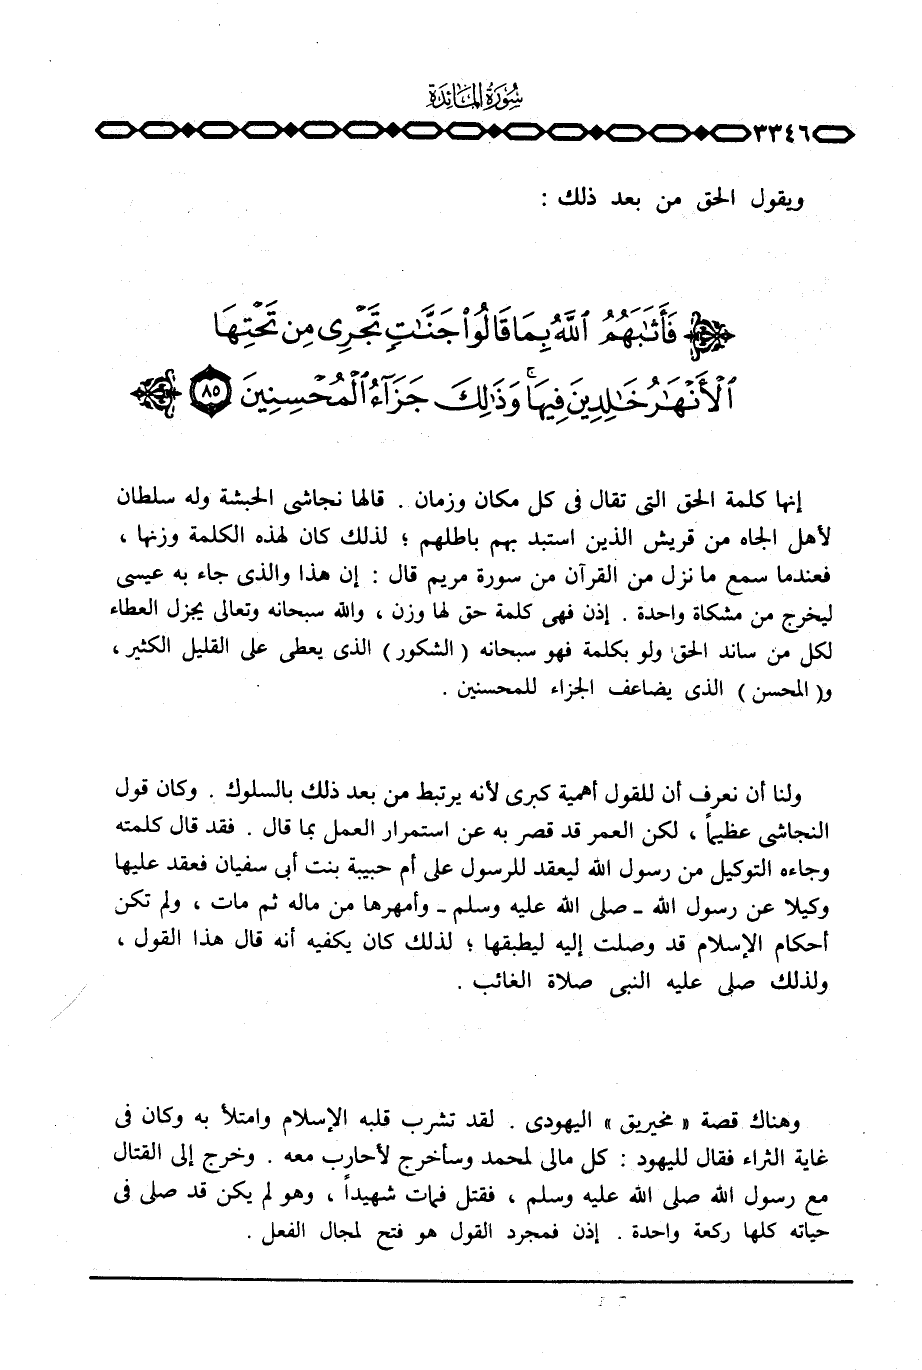 سُورَةُ المَائِدَة
٣٣٤٦
ويقول الحق من بعد ذلك :
فَأَثَٰبَهُمُ ٱللَّهُ بِمَا قَالُوا۟ جَنَّٰتٍ تَجْرِى مِن تَحْتِهَا
ٱلْأَنْهَٰرُ خَٰلِدِينَ فِيهَا ۚ وَذَٰلِكَ جَزَآءُ ٱلْمُحْسِنِينَ ٨٥
إنها كلمة الحق التى تقال فى كل مكان وزمان . قالها نجاشى الحبشة وله سلطان
لأهل الجاه من قريش الذين استبد بهم باطلهم ؛ لذلك كان لهذه الكلمة وزنها ،
فعندما سمع ما نزل من القرآن من سورة مريم قال : إن هذا والذى جاء به عيسى
ليخرج من مشكاة واحدة . إذن فهى كلمة حق لها وزن ، والله سبحانه وتعالى يجزل العطاء
لكل من ساند الحق ولو بكلمة فهو سبحانه ( الشكور ) الذى يعطى على القليل الكثير ،
و( المحسن ) الذى يضاعف الجزاء للمحسنين .
ولنا أن نعرف أن للقول أهمية كبرى لأنه يرتبط من بعد ذلك بالسلوك . وكان قول
النجاشى عظيماً ، لكن العمر قد قصر به عن استمرار العمل بما قال . فقد قال كلمته
وجاءه التوكيل من رسول الله ليعقد للرسول على أم حبيبة بنت أبى سفيان فعقد عليها
وكيلا عن رسول الله ـ صلى الله عليه وسلم ـ وأمهرها من ماله ثم مات ، ولم تكن
أحكام الإسلام قد وصلت إليه ليطبقها ؛ لذلك كان يكفيه أنه قال هذا القول ،
ولذلك صلى عليه النبى صلاة الغائب .
وهناك قصة « مخيريق » اليهودى . لقد تشرب قلبه الإسلام وامتلأ به وكان فى
غاية الثراء فقال لليهود : كل مالى لمحمد وسأخرج لأحارب معه . وخرج إلى القتال
مع رسول الله صلى الله عليه وسلم ، فقتل فمات شهيداً ، وهو لم يكن قد صلى فى
حياته كلها ركعة واحدة . إذن فمجرد القول هو فتح لمجال الفعل .